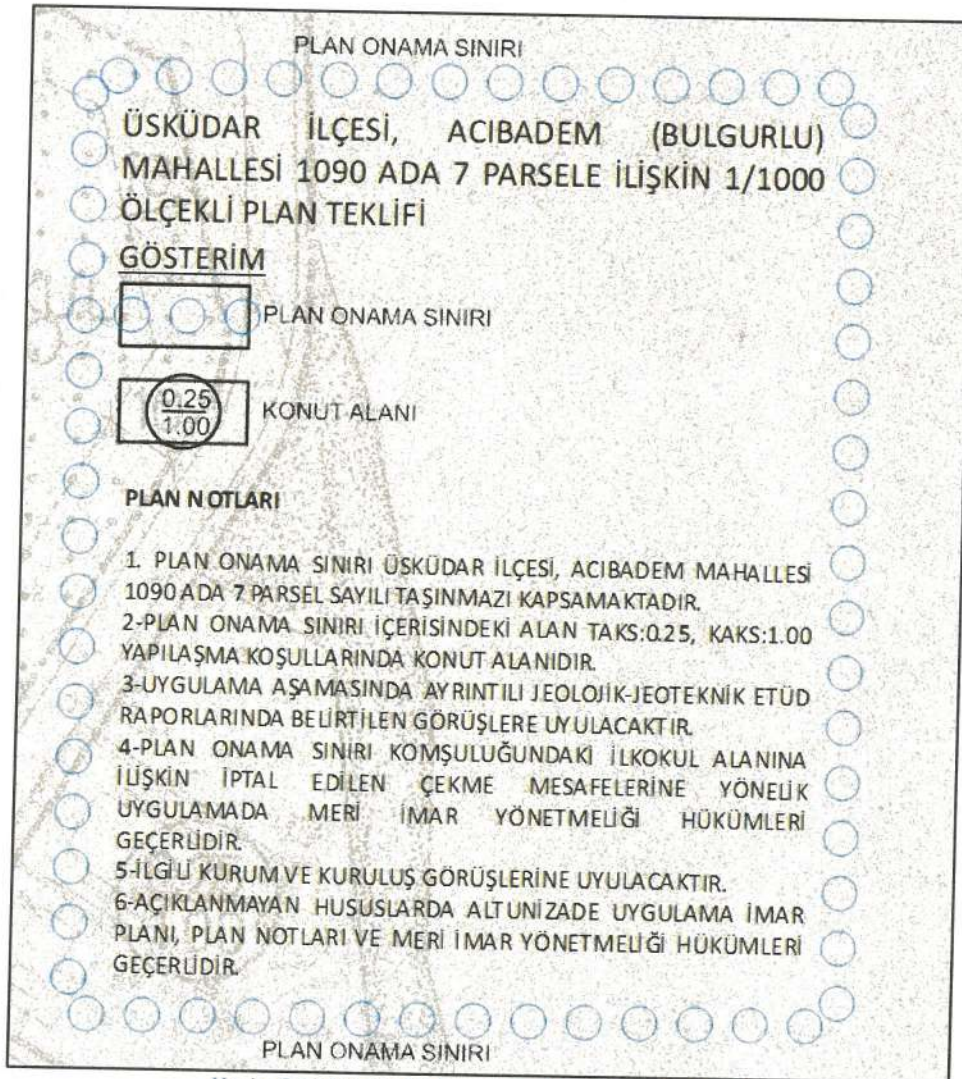 PLAN ONAMA SINIRI
ÜSKÜDAR İLÇESİ, ACIBADEM (BULGURLU)
MAHALLESİ 1090 ADA 7 PARSELE İLİŞKİN 1/1000
ÖLÇEKLİ PLAN TEKLİFİ
GÖSTERİM
PLAN ONAMA SINIRI
0.25
1.00
KONUT ALANI
PLAN NOTLARI
1. PLAN ONAMA SINIRI ÜSKÜDAR İLÇESİ, ACIBADEM MAHALLESİ
1090 ADA 7 PARSEL SAYILI TAŞINMAZI KAPSAMAKTADIR.
2-PLAN ONAMA SINIRI İÇERİSİNDEKİ ALAN TAKS:0.25, KAKS:1.00
YAPILAŞMA KOŞULLARINDA KONUT ALANIDIR.
3-UYGULAMA AŞAMASINDA AYRINTILI JEOLOJİK-JEOTEKNİK ETÜD
RAPORLARINDA BELİRTİLEN GÖRÜŞLERE UYULACAKTIR.
4-PLAN ONAMA SINIRI KOMŞULUĞUNDAKİ İLKOKUL ALANINA
İLİŞKİN İPTAL EDİLEN ÇEKME MESAFELERİNE YÖNELİK
UYGULAMADA MERİ İMAR YÖNETMELİĞİ HÜKÜMLERİ
GEÇERLİDİR.
5-İLGİLİ KURUM VE KURULUŞ GÖRÜŞLERİNE UYULACAKTIR.
6-AÇIKLANMAYAN HUSUSLARDA ALTUNİZADE UYGULAMA İMAR
PLANI, PLAN NOTLARI VE MERİ İMAR YÖNETMELİĞİ HÜKÜMLERİ
GEÇERLİDİR.
PLAN ONAMA SINIRI